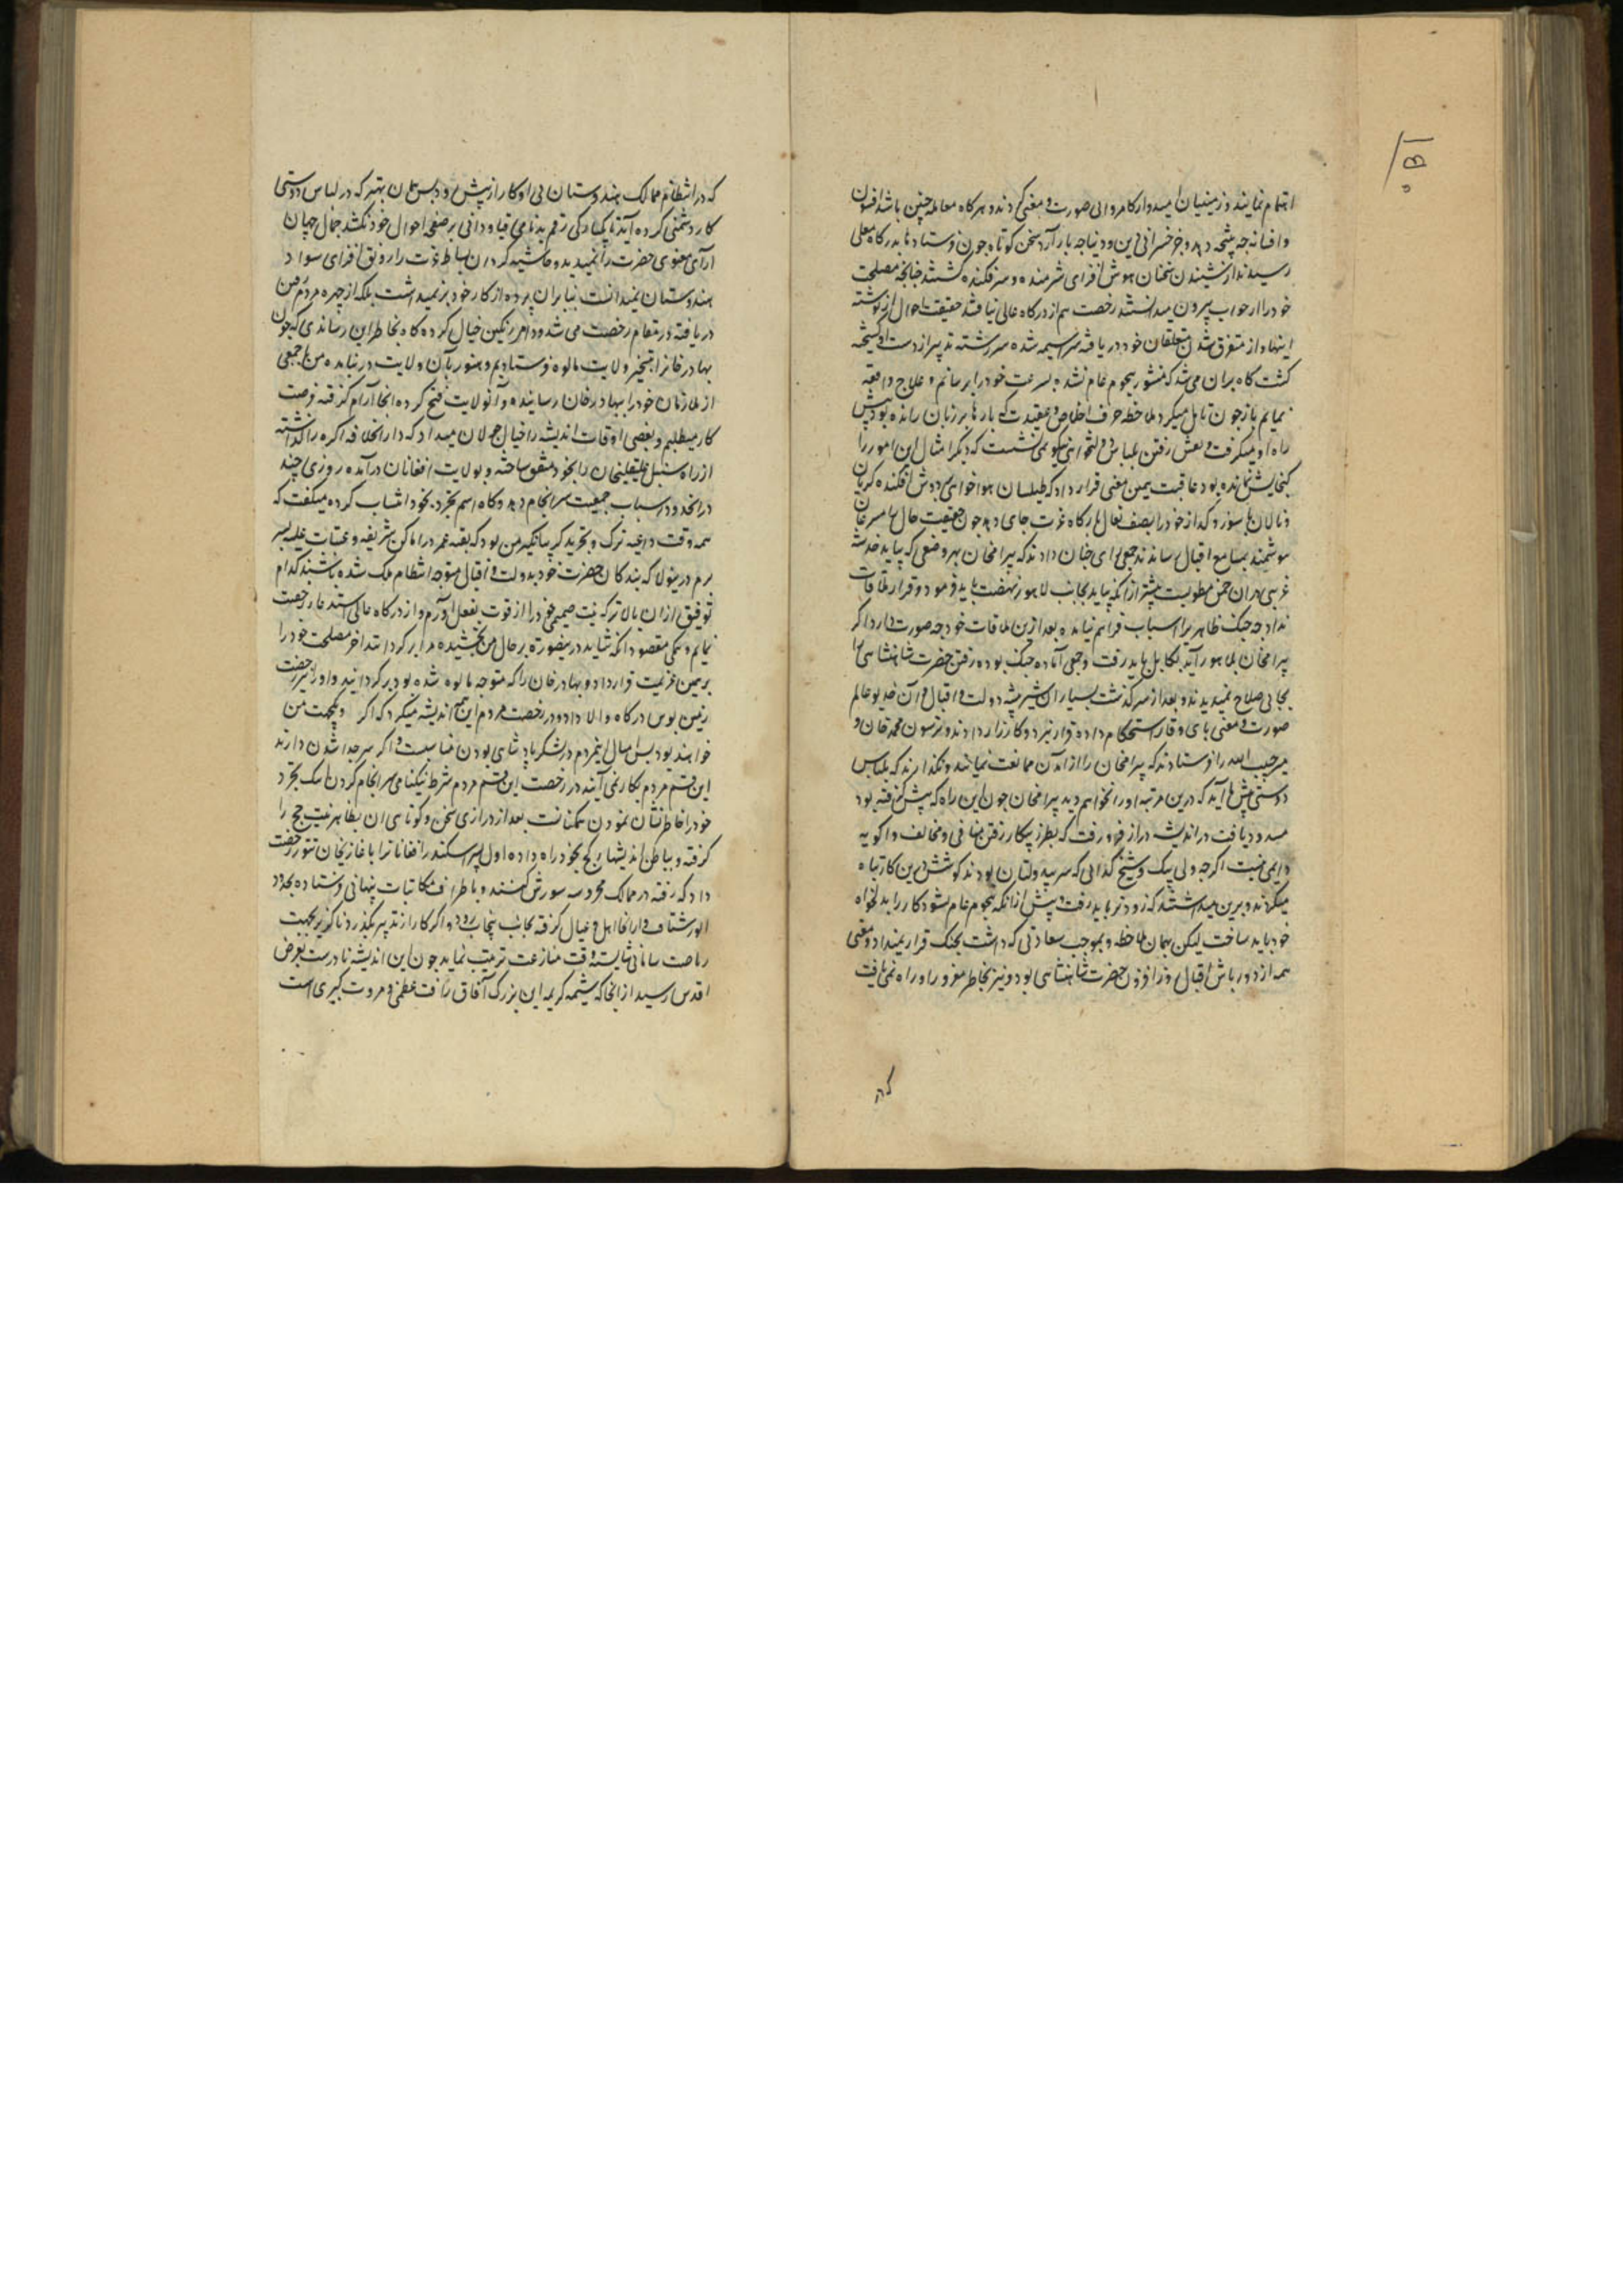 اهتمام نمایند و زمینیان امیدوار کامروایی صورت و معنی کردند و هرکاه معامله چنین باشد افسون
و افسانه چه نتیجه دهد و جز خسرانی دین و دنیا چه بار آرد سخن کوتاه چون فرستادها بدرکاه معلی
رسیدند از شنیدن سخنان هوش افزای شرمنده و سرفکنده کشتند چنانچه مصلحت
خود را از جواب بیرون میدانستند رخصت هم از درکاه عالی نیافتند حقیقت احوال از نوشته
اینها و از متفرق شدن متعلقان خود دریافته سراسیمه شده سررشته تدبیر از دست او کسیخته
کشت کاه بران می شد که هنوز هجوم عام نشده بسرعت خود را برسانم و علاج واقعه
نمایم باز چون تامل میکرد ملاحظه حرف اخلاص و عقیدت که بارها بر زبان رانده بود پیش
راه او میکرفت و نعش رفتن بلباس دولتخواهی نیکو نمی نشست که دیکر امثال این امور را
کنجایش نمانده بود عاقبت بهمین معنی قرار داد که طیلسان هواخواهی بر دوش افکنده کریان
و نالان با سوز و کداز خود را بصف نعال بارکاه عزت جای دهد چون حقیقت حال بمسامع
رسانند جمعی رای چنان دادند که بیرامخان بهر وضعی که بیاید خدشه
غریبی دران ضمن مطویست پیشتر از آنکه بیاید بجانب لاهور نهضت باید فرمود و قرار ملاقات
نداد چه جنک ظاهر را اسباب فراهم نیامده بعد ازین ملاقات خود چه صورت دارد اکر
بیرامخان بلاهور آید بکابل باید رفت و جمعی آماده جنک بوده رفتن حضرت شاهنشاهی را
بجایی صلاح نمیدیدند و بعد از سرکذشت بسیار آن شیر بیشه دولت و اقبال و آن خدیو عالم
صورت و معنی پای وقار استحکام داده قرار نبرد و کارزار دادند و ترسون محمد خان و
میر حبیب الله را فرستادند که بیرامخان را از آمدن ممانعت نمایند و نکذارند که بلباس
دوستی پیش ما آید که درین مرتبه او را نخواهم دید بیرامخان چون این راه که پیش کرفته بود
مسدود یافت در اندیشه دراز فرو رفت که بطرز پیکار رفتن منافی و مخالف داکویه
دایمی نیست اکرچه ولی بیک و شیخ کدایی که سر بیدولتان بودند کوشش درین کار تباه
میکردند و برین میداشتند که زودتر باید رفت و پیش از آنکه هجوم عام شود کار را بدلخواه
خود باید ساخت لیکن بهمان ملاحظه و بموجب سعادتی که داشت بجنک قرار نمیداد و معنی
همه از دورباش اقبال روز افزون حضرت شاهنشاهی بود و نیز بخاطر مغرور او راه نمی یافت
که
که در انتظام ممالک هندوستان بی او کار از پیش رود پس همان بهتر که در لباس دوستی
کار دشمنی کرده آید تا یکبارکی رقم بدنامی جاودانی بر صفحه احوال خود نکشد جمال جهان
آرای معنوی حضرت را نمیدید و حاشیه کردان بساط عزت را رونق افزای سواد
هندوستان میدانست بنابران پرده از کار خود بر نمیداشت بلکه از چهره مردم من
دریافته در مقام رخصت می شد و دامن رنکین خیال کرده کاه بخاطر این رساندی که چون
بهادرخان را بتسخیر ولایت مالوه فرستادیم و هنوز بآن ولایت در نیامده من با جمعی
از ملازمان خود را ببهادرخان رسانیده و آنولایت فتح کرده آنجا آرام کرفته فرصت
کار میطلبم و بعضی اوقات اندیشه را خیال جولان میداد که دارالخلافه اکره را کذاشته
از راه سنبل علیقلیخان را بخود متفق ساخته و بولایت افغانان درآمده روزی چند
در انحدود اسباب جمعیت سرانجام دهد و کاه اسم تجرد بخود انتساب کرده میکفت که
همه وقت داعیه ترک و تجرید کریبانکیر من بود که بقیه عمر در اماکن شریفه و عتبات علیه بسر
برم درینولا که بندکان حضرت خود بدولت و اقبال متوجه انتظام ملک شده باشند کدام
توفیق ازان بالاتر که نیت صمیمی خود را از قوت بفعل آورم و از درکاه عالی استدعاء رخصت
نمایم و همکی مقصود آنکه شاید درینصورت بر حال من بخشیده مرا برکردانند آخر مصلحت خود را
برین عزیمت قرار داد و بهادرخان را که متوجه مالوه شده بود برکردانید و او را نیز رخصت
زمین بوس درکاه والا داد و در رخصت مردم این هم اندیشه میکرد که اکر یکجهت من
خواهند بود پس امسال اینمردم در لشکر پادشاهی بودن مناسبست و اکر سر جدا شدن دارند
این قسم مردم بکار نمی آیند در رخصت این قسم مردم شرط نیکنامی سرانجام کردن اسباب تجرد
خود را خاطرنشان نمودن همکنانست بعد از درازی سخن و کوتاهی آن بظاهر نیت حج را
کرفته و بباطن اندیشهای کج بخود راه داده اول پسر اسکندر افغانا ترا با غازیخان تنور رخصت
داد که رفته در ممالک محروسه شورش کنند و باطراف مکاتبات پنهانی فرستاده بحدود
الور شتافت و از آنجا اهل و عیال کرفته بجانب پنجاب رود و اکر کار از تدبیر بکذرد ناکزیر بجهت
سامانی شایسته وقت منازعت ترتیب نماید چون این اندیشه نادرست بعرض
اقدس رسید از آنجا که شیمه کریمه این بزرک آفاق رافت عظمی و مروت کبری است